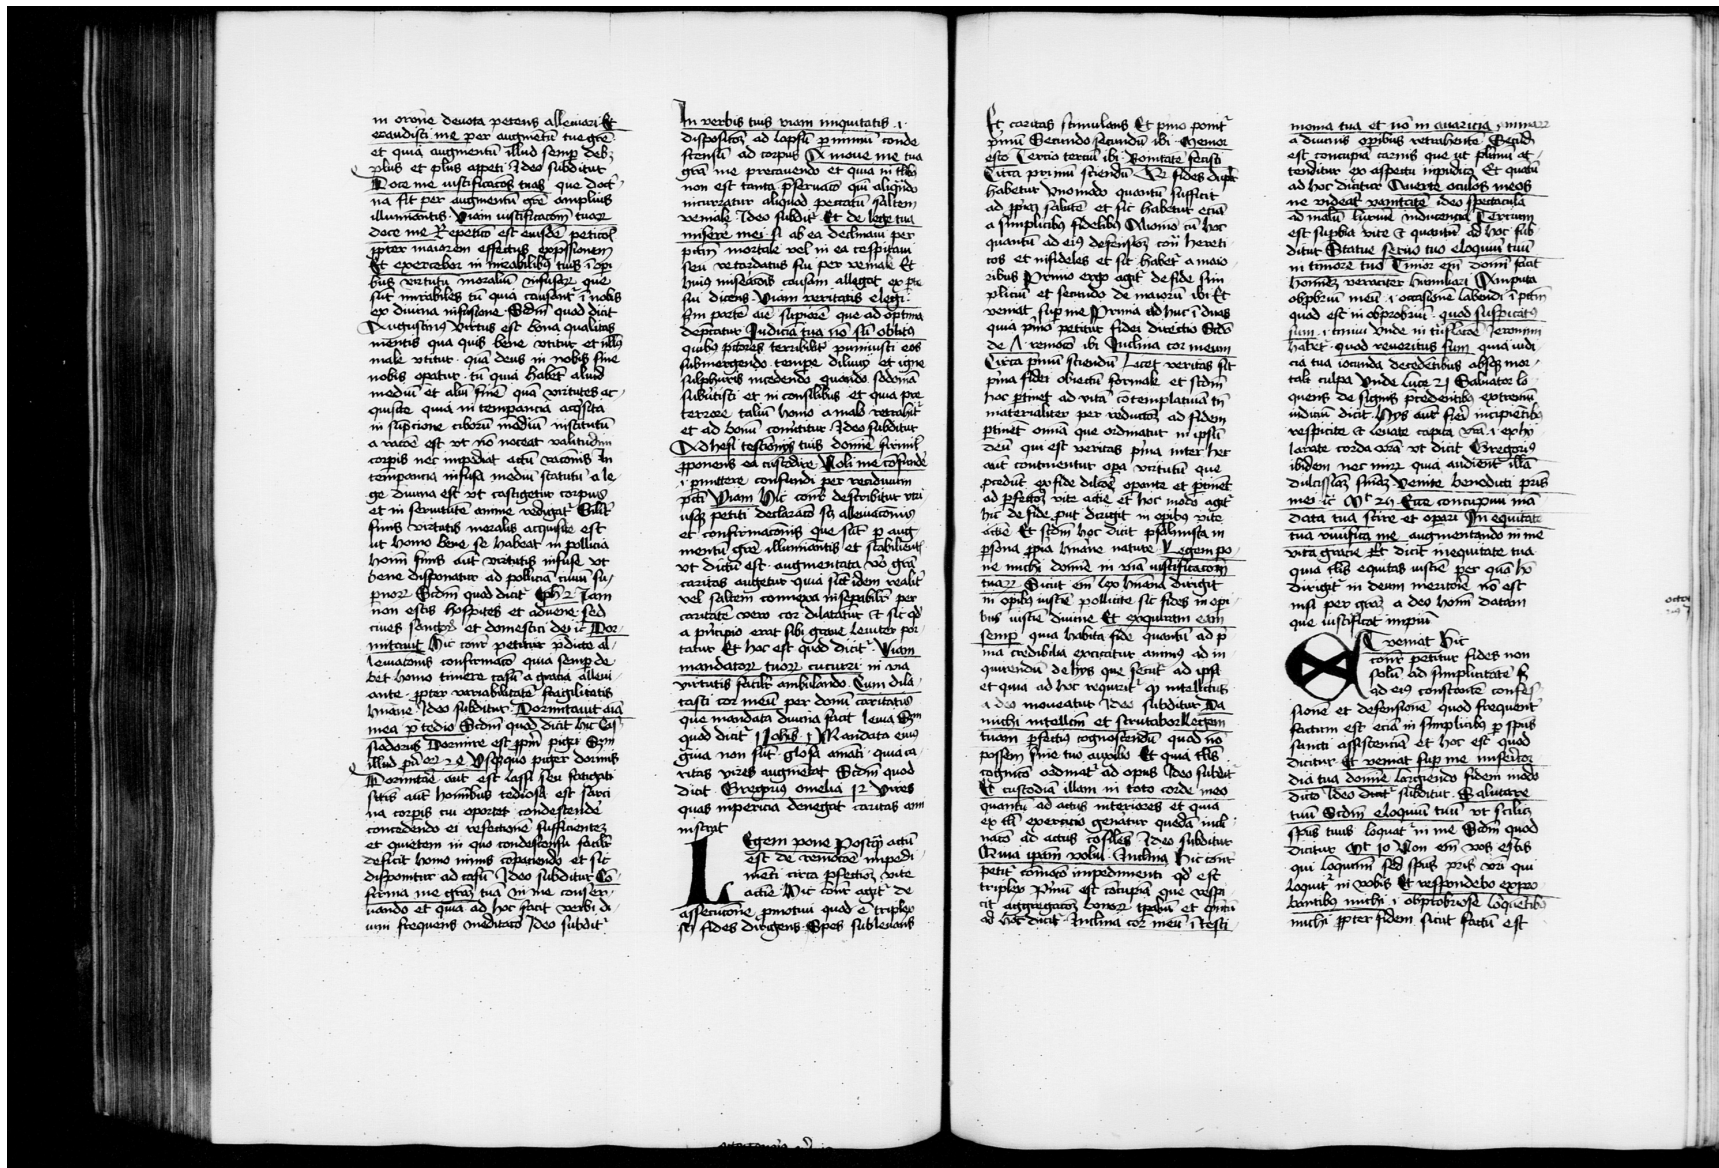 in orōne devota petens alleviari Et
exaudisti me per augmētū tue grē
et quia augmentū illud semp debꝫ
plus et plus appeti Ideo subditur
Doce me iustificacōes tuas que doct
na fit per augmentū grē amplius
illuminantis Viam iustificacōnū tuaꝝ
doce me Repetico est eiusdē peticōis
ꝓpter maiorem effectus expssionem
Et exercebor in mirabilibꝰ tuis i opi
bus virtutū moraliū infusaꝝ que
sūt mirabiles tū quia causantʳ i nobis
ex divina infusione Scdm quod dicit
Augustinus Virtus est bona qualitas
mentis qua quis bene vtitur et nullꝰ
male vtitur quā deus in nobis sine
nobis opatur tū quia habēt aliud
mediū et aliū finē quā virtutes ac
quisite quia in tempancia acqsita
in supcione ciborū mediū institutū
a racōe est vt nō noceat valitudini
corpis nec impediat actū racōnis In
tempancia infusa mediū statutū a le
ge divina est vt castigetur corpus
et in servitutē anime redigat Silit
finis virtutis moralis acquisite est
ut homo bene se habeat in pollicia
homi finis aūt virtutis infuse vt
bene disponatur ad polliciā civiū su
pnoꝝ Scdm quod dicit Eph 2 Iam
non estis hospites et advene sed
cives sanctoꝝ et domestici dei ic Dor
mitavit Hic contʳ petitur pdicte al
levacōnis confirmacō quia semp de
bet homo timere casū a gracia allevi
ante ꝓpter variabilitatē fragilitatis
hūane Ideo subditur Dormitavit aīa
mea p tedio Scdm quod dicit hic Cas
siodorus Dormire est ꝓpm pigri Scdm
illud pvʳ Vsqꝫquo piger dormis
Dormitare aut est lassi seu fatigati
sitis aut homibus tediosa est sarci
na corpis cui oportet condescende
concedendo ei refectionē sufficientē
et quietem in quo condescensu faciliʳ
deficit homo nimis cōpaciendo et sic
disponitur ad casū Ideo subditur Co
firma me gracia tua in me conser
vando et quia ad hoc facit verbi di
vini frequens meditacō Ideo subditʳ
In verbis tuis viam iniquitatis i
disposicōm ad lapsū p nimiū conde
scensū ad corpus Amove me tua
grā me precavendo et quia in tlibꝰ
non est tanta pservacō qui aliqndo
incurratur aliquod peccatū saltem
veniale Ideo subditʳ Et de lege tua
miserē mei si ab ea declinavi per
pctm mortale vel in ea cespitavi
seu retardatus sui per veniale Et
huius miseracōis causam allegat ex pte
sui dicens Viam veritatis elegi
scdm partē aīe supiorē que ad optima
depcatur Iudicia tua nō sū oblitꝰ
quibꝰ pctores terribiliʳ punivisti eos
submergendo tempe diluvij et igne
sulphuris incedendo quando sodomā
subvtisti et in consilibus et quia pre
terrore taliū homo a malo retrahitʳ
et ad bonū comitatur Ideo subditur
Adhesi testimonijs tuis domine firmit
ꝓponens ea custodire Noli me cōfunde
i pmittere confundi per recidivum
pcti Viam Hic contʳ describitur vtri
usqꝫ petiti declaracō scꝫ alleviacōnis
et confirmacōnis que sūt p aug
mentū grē illuminātis et stabilient
vt dictū est augmentata vō grā
caritas augetur quia sūt idem realitʳ
vel saltem connexa insepabiliter per
caritatē vero cor dilatatur et sic qd
a pncipio erat sibi grave leviter por
tatur Et hoc est quod dicitʳ Viam
mandatoꝝ tuoꝝ cucurri in via
virtutis faciliʳ ambulando Cum dila
tasti cor meū per donū caritatis
que mandata divina facit levia Scdm
quod dicitʳ I Iohis Mandata eius
gravia non sūt glosa amāti quia ca
ritas vires augmētat Scdm quod
dicit Gregorius omelia 12 Vires
quas impericia denegat caritas am
mistrat
Legem pone Postqᷓ actū
est de remocōe impedi
menti circa pfectioꝫ vite
active Hic contʳ agitʳ de
assecucōne pmotivi quod ē triplex
scꝫ fides dirigens Spes sublevans
Et caritas stimulans Et pmo ponitʳ
pmū Secundo secundū ibi Memor
esto Tercio terciū ibi Bonitatē fecisti
Circa primū sciendū Qꝫ fides dupliciʳ
habetur Vnomodo quantū sufficit
ad ppriā salutē et sic habetur eciā
a simplicibꝰ fidelibꝰ Aliomō cū hoc
quantū ad eius defensioꝫ contʳ hereti
cos et infideles et sic habetʳ a maio
ribus Primo ergo agitʳ de fide sim
pliciū et secundo de maioꝝ ibi Et
veniat sup me Prima ad huc i duas
quia pmo petitur fidei directio Scdo
de Ꝝ remocō ibi Inclina cor meum
Circa pmū sciendū Licet veritas sit
pma fidei obiectū formale et scdm
hoc ptinet ad vitā cōtemplativā tn
materialiter per reductōm ad fidem
ptinet omia que ordinatur in ipsū
deū qui est veritas pma inter hec
aut continentur opa virtutū que
pcedūt ex fide dilcōe opante et ptinēt
ad pfectioꝫ vite active et hoc modo agitʳ
hic de fide put dirigit in opibꝰ vite
active Et scdm hoc dicit psalmista in
psona ppria hūane nature Legem po
ne michi domine in viā iustificacom
tuaꝝ Sicut em lex hūana dirigit
in opibꝰ iusticie pollitice sic fides in opi
bus iusticie divine Et exquiram eam
semp quia habita fide quantū ad p
ma credibilia excitatur animꝰ ad in
quirendū de hijs que secūtʳ ad ipsa
et quia ad hoc requiritʳ qꝫ intellectus
a deo moveatur Ideo subditur Da
michi intellcm et scrutabor legem
tuam pfectiꝰ cognoscendū quod nō
possem sine tuo auxilio Et quia tlis
cognicō ordinatʳ ad opus Ideo subditʳ
Et custodiā illam in toto corde meo
quantū ad actus interiores et quia
ex tli exercicio genātur quedā incli
nacō ad actus cōsiles Ideo subditur
Quia ipsam volui Inclina Hic contʳ
petitʳ remocō impedimenti qd est
triplex Pmū est cōcupia que respi
cit aggregacōꝫ bonoꝝ tpaliū et quātū
ad hoc dicit Inclina cor meū i testi
monia tua et nō in avaricia
a divinis opibus retrahente Secūd
est concupia carnis que ut plimū at
tenditur ex aspectu impudico Et quātū
ad hoc dicitur Averte oculos meos
ne videāt vanitatē ideo spectacula
ad malū luxurie inducencia Tercium
est supbia vite et quantū ad hoc sub
ditur Statue servo tuo eloquiū tuū
in timore tuo Timor em domi facit
hominē veraciter humiliari Amputa
obpbriū meū i occasionē labendi i pctm
quod est in obprobriū quod suspicatꝰ
sum i timui Vnde in tnslacōe Ieronim
habetʳ quod reveritus sum quia iudi
cia tua iocunda decedētibus absqꝫ mor
tali culpa Vnde Luce 21 Salvator lo
quens de signis pcedentibꝰ extremū
iudiciū dicit Hijs aut fieri incipietibꝰ
respicite et levate capita vrā i exhi
larate corda vrā vt dicit Gregorius
ibidem nec mirꝫ quia audient illā
dulcissimā sūiaꝫ Venite benedicti pris
mei ic Mt 25 Ecce concupivi mā
data tua scire et opari In equitate
tua vivifica me augmentando in me
vita gracie Et dicit inequitate tua
quia tlis equitas iusticie per quā hō
dirigitʳ in deum meritorie nō est
nisi per graꝫ a deo homi datam
que iustificat impiū
Et veniat Hic
contʳ petitur fides non
solū ad simplicitatē sꝫ
ad eiꝰ constante confes
sionē et defensionē quod frequenʳ
factum est eciā in simplicibꝰ p spūs
sancti assistenciā et hoc est quod
dicitur Et veniat sup me misericor
dia tua domine largiendo fidem modo
dicto Ideo dicitʳ subditur Salutare
tuū Scdm eloquiū tuū vt scilicꝫ
spūs tuus loquatʳ in me Scdm quod
dicitur Mt 10 Non em vos estis
qui loquimi sed spūs pris vri qui
loquitʳ in vobis Et respondebo expro
brantibus michi i obprobriose loquētibꝰ
michi ꝓpter fidem sicut factū est